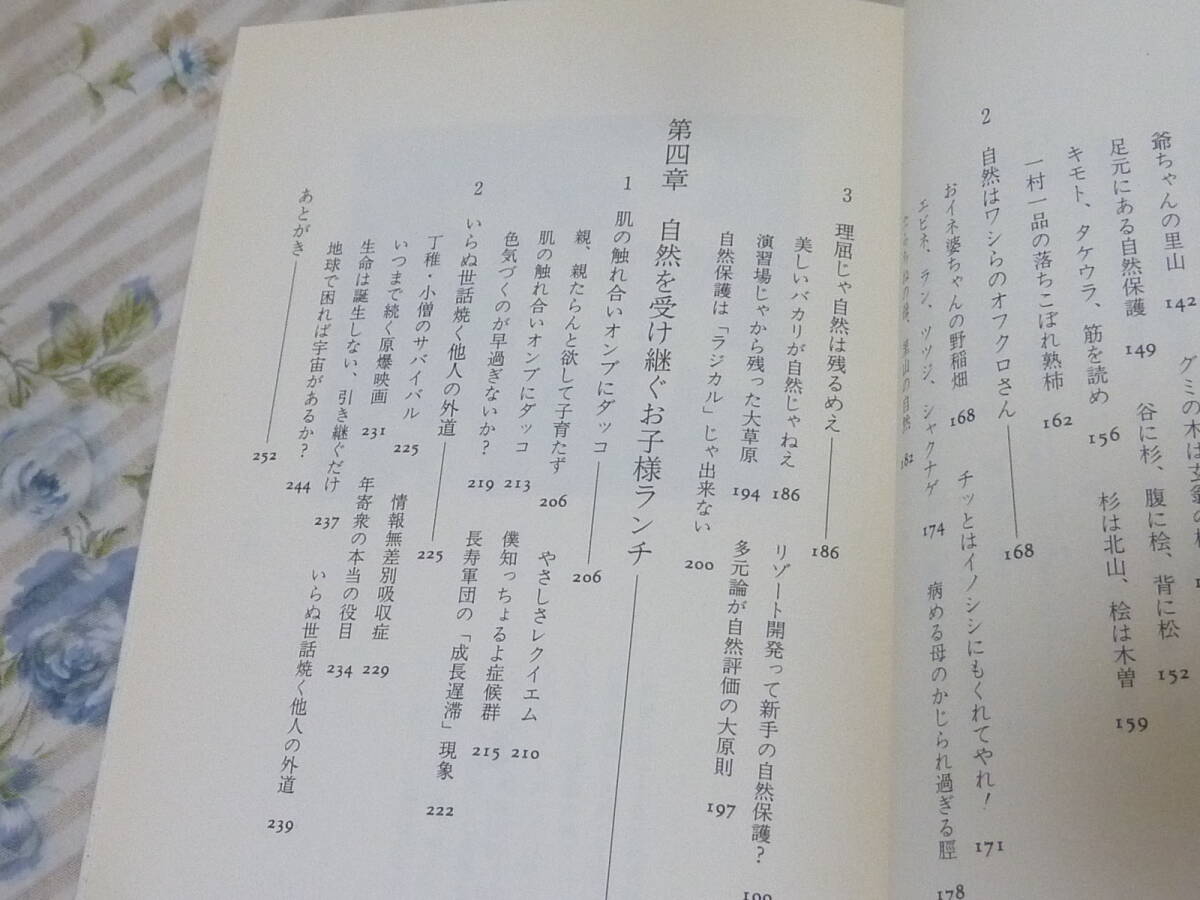 爺ちゃんの里山 142
足元にある自然保護 149
谷に杉、腹に桧、背に松 152
キモト、タケウラ、筋を読め 156
杉は北山、桧は木曽 159
一村一品の落ちこぼれ熟柿 162
2 自然はワシらのオフクロさん 168
おイネ婆ちゃんの野稲畑 168
チッとはイノシシにもくれてやれ! 171
エビネ、ラン、ツツジ、シャクナゲ 174
病める母のかじられ過ぎる脛 178
里山の自然 182
3 理屈じゃ自然は残るめえ 186
美しいバカリが自然じゃねえ 186
リゾート開発って新手の自然保護?
演習場じゃから残った大草原 194
多元論が自然評価の大原則 197
自然保護は「ラジカル」じゃ出来ない 200
第四章 自然を受け継ぐお子様ランチ
1 肌の触れ合いオンブにダッコ 206
親、親たらんと欲して子育たず 206
やさしさレクイエム 210
肌の触れ合いオンブにダッコ 213
僕知っちょるよ症候群 215
色気づくのが早過ぎないか? 219
長寿軍団の「成長遅滞」現象 222
2 いらぬ世話焼く他人の外道 225
丁稚・小僧のサバイバル 225
情報無差別吸収症 229
いつまで続く原爆映画 231
年寄衆の本当の役目 234
生命は誕生しない、引き継ぐだけ 237
いらぬ世話焼く他人の外道 239
地球で困れば宇宙があるか? 244
あとがき 252